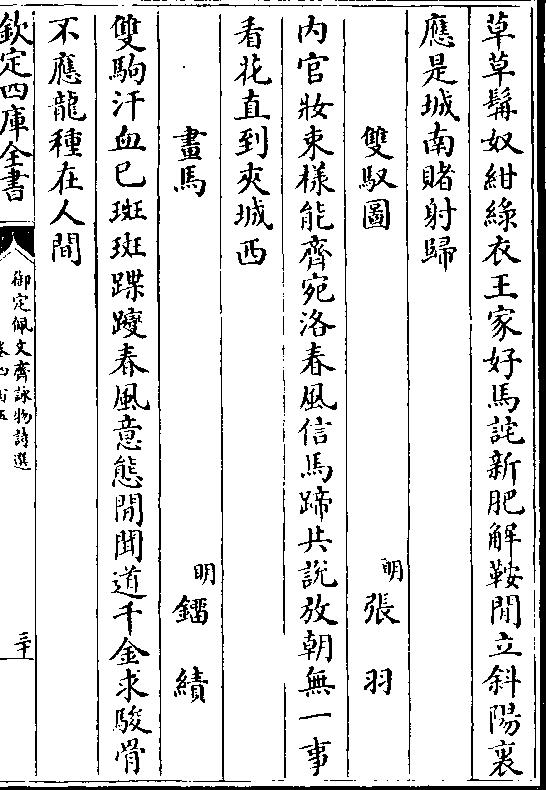 草草髯奴紺綠衣王家好馬詫新肥解鞍閒立斜陽裏
應是城南賭射歸
雙馭圖
明張羽
内官妝束様能齊宛洛春風信馬蹄共説放朝無一事
看花直到夾城西
畫馬
明鐳績
雙駒汗血已斑斑蹀躞春風意態閒聞道千金求駿骨
不應龍種在人間
欽定四庫全書
御定佩文齊詠物詩選
卷四百五
三十